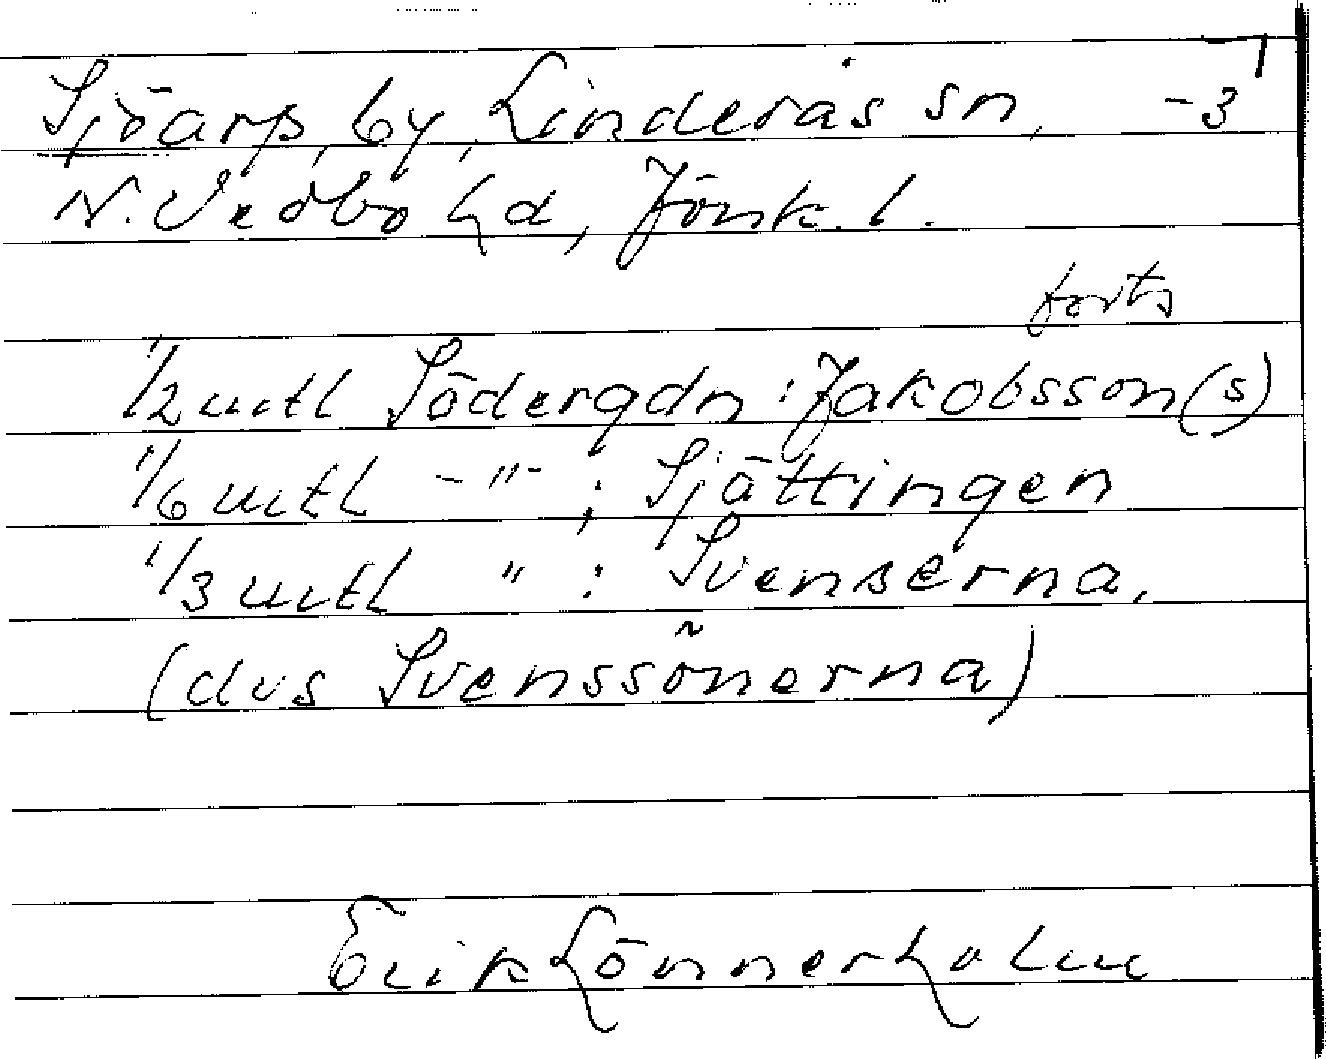 Sjöarp, by, Linderås sn, -3
N. Vedbo hd, Jönk. l.
forts
1/2 mtl Södergdn: Jakobsson(s)
1/6 mtl -"- ; Sjättingen
1/3 mtl " : Svenserna,
(dvs Svenssönerna)
Erik Lönnerholm